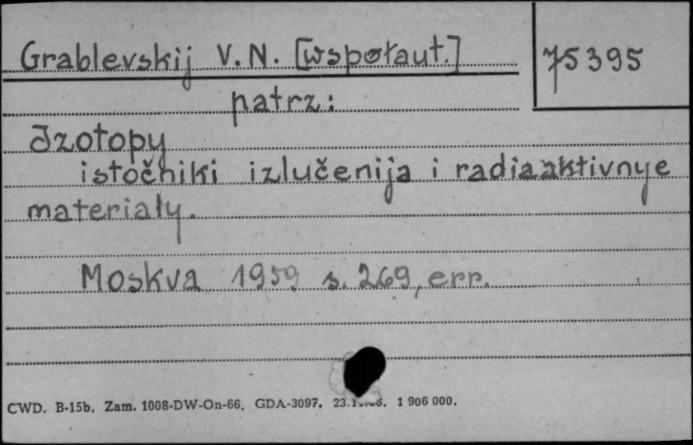 Grablevskij V. N. [współaut.]
75395
patrz:
Izotopy
istočniki izlučenija i radiaaktivnye
materiały.
Moskva 1959 s. 269, err.
CWD. B-15b. Zam. 1008-DW-On-66. GDA-3097. 1 906 000.